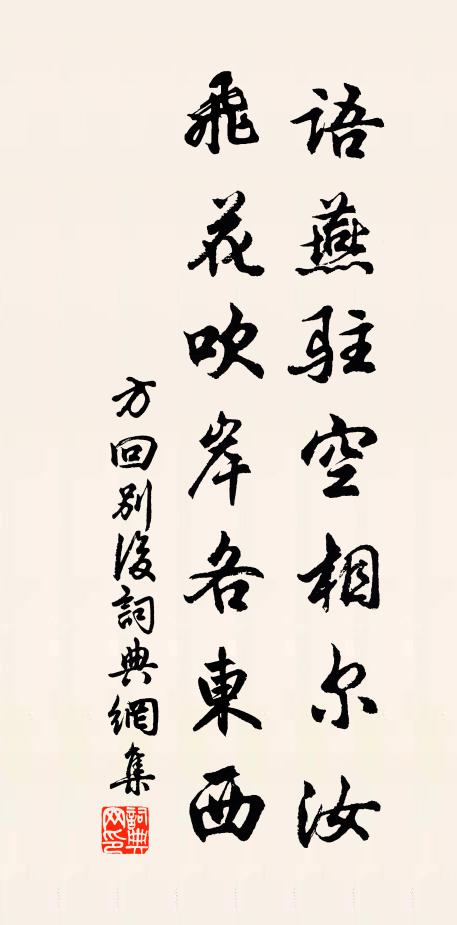 語燕駐空相尔汝
飛花吹岸各東西
方回别後詞典網集
詞典网印